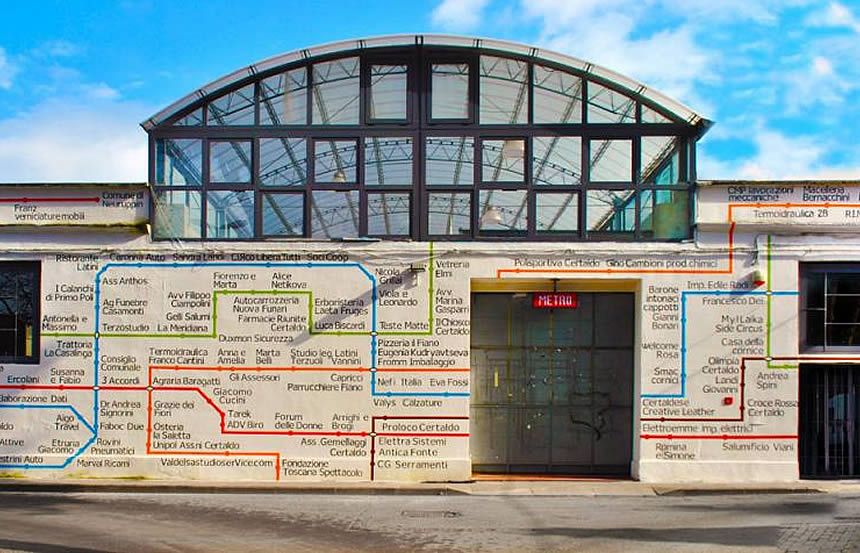 Franz
verniciature mobili
Comune di
Neuruppin
CMP lavorazioni
meccaniche
Macelleria
Bernacchini
Termoidraulica 28
Ristorante
Latini
Caronna Auto
Sandra Landi
Soci Coop
Polisportiva Certaldo
Gino Cambioni prod.chimici
I Calanchi
di Primo Poli
Antonella e
Massimo
Trattoria
La Casalinga
Susanna
e Fabio
Ercolani
Ass Anthos
Ag Funebre
Casamonti
Terzostudio
Consiglio
Comunale
3 Accordi
Dr Andrea
Signorini
Faboc Due
Rovini
Pneumatici
Marval Ricami
Aigo
Travel
Etruria
Giacomo
Avv Filippo
Ciampolini
Gelli Salumi
La Meridiana
Fiorenzo e
Marta
Alice
Netikova
Autocarrozzeria
Nuova Funari
Farmacie Riunite
Certaldo
Duxman Sicurezza
Erboristeria
Laeta Fruges
Luca Biscardi
Nicola
Grifai
Viola e
Leonardo
Teste Matte
Vetreria
Elmi
Avv.
Marina
Gasparri
Il Chiosco
Certaldo
Pizzeria il Fiano
Eugenia Kudryavtseva
Fromm Imballaggio
Nefi Italia
Eva Fossi
Valys Calzature
Termoidraulica
Franco Cantini
Anna e
Amelia
Marta
Belli
Studio leg. Latini
Terzuoli Vannini
Agraria Baragatti
Gli Assessori
Capriccio
Parrucchiere Fiano
Giacomo
Cucini
Grazie dei
Fiori
Osteria
la Saletta
Unipol Ass.ni Certaldo
Tarek
ADV Biro
Forum
delle Donne
Arrighi e
Brogi
Ass. Gemellaggi
Certaldo
Proloco Certaldo
Elettra Sistemi
Antica Fonte
CG Serramenti
ValdelsastudioserVicecom
Fondazione
Toscana Spettacolo
METRO
Barone
intonaci
cappotti
Gianni
Bonari
Welcome
Rosa
Smac
cornici
Certaldese
Creative Leather
Elettroemme imp. elettrici
Romina
e Simone
Salumificio Viani
Imp. Edile Radi
Francesco Dei
Myl Laika
Side Circus
Casa della
cornice
Olimpia
Certaldo
Landi
Giovanni
Andrea
Spini
Croce Rossa
Certaldo